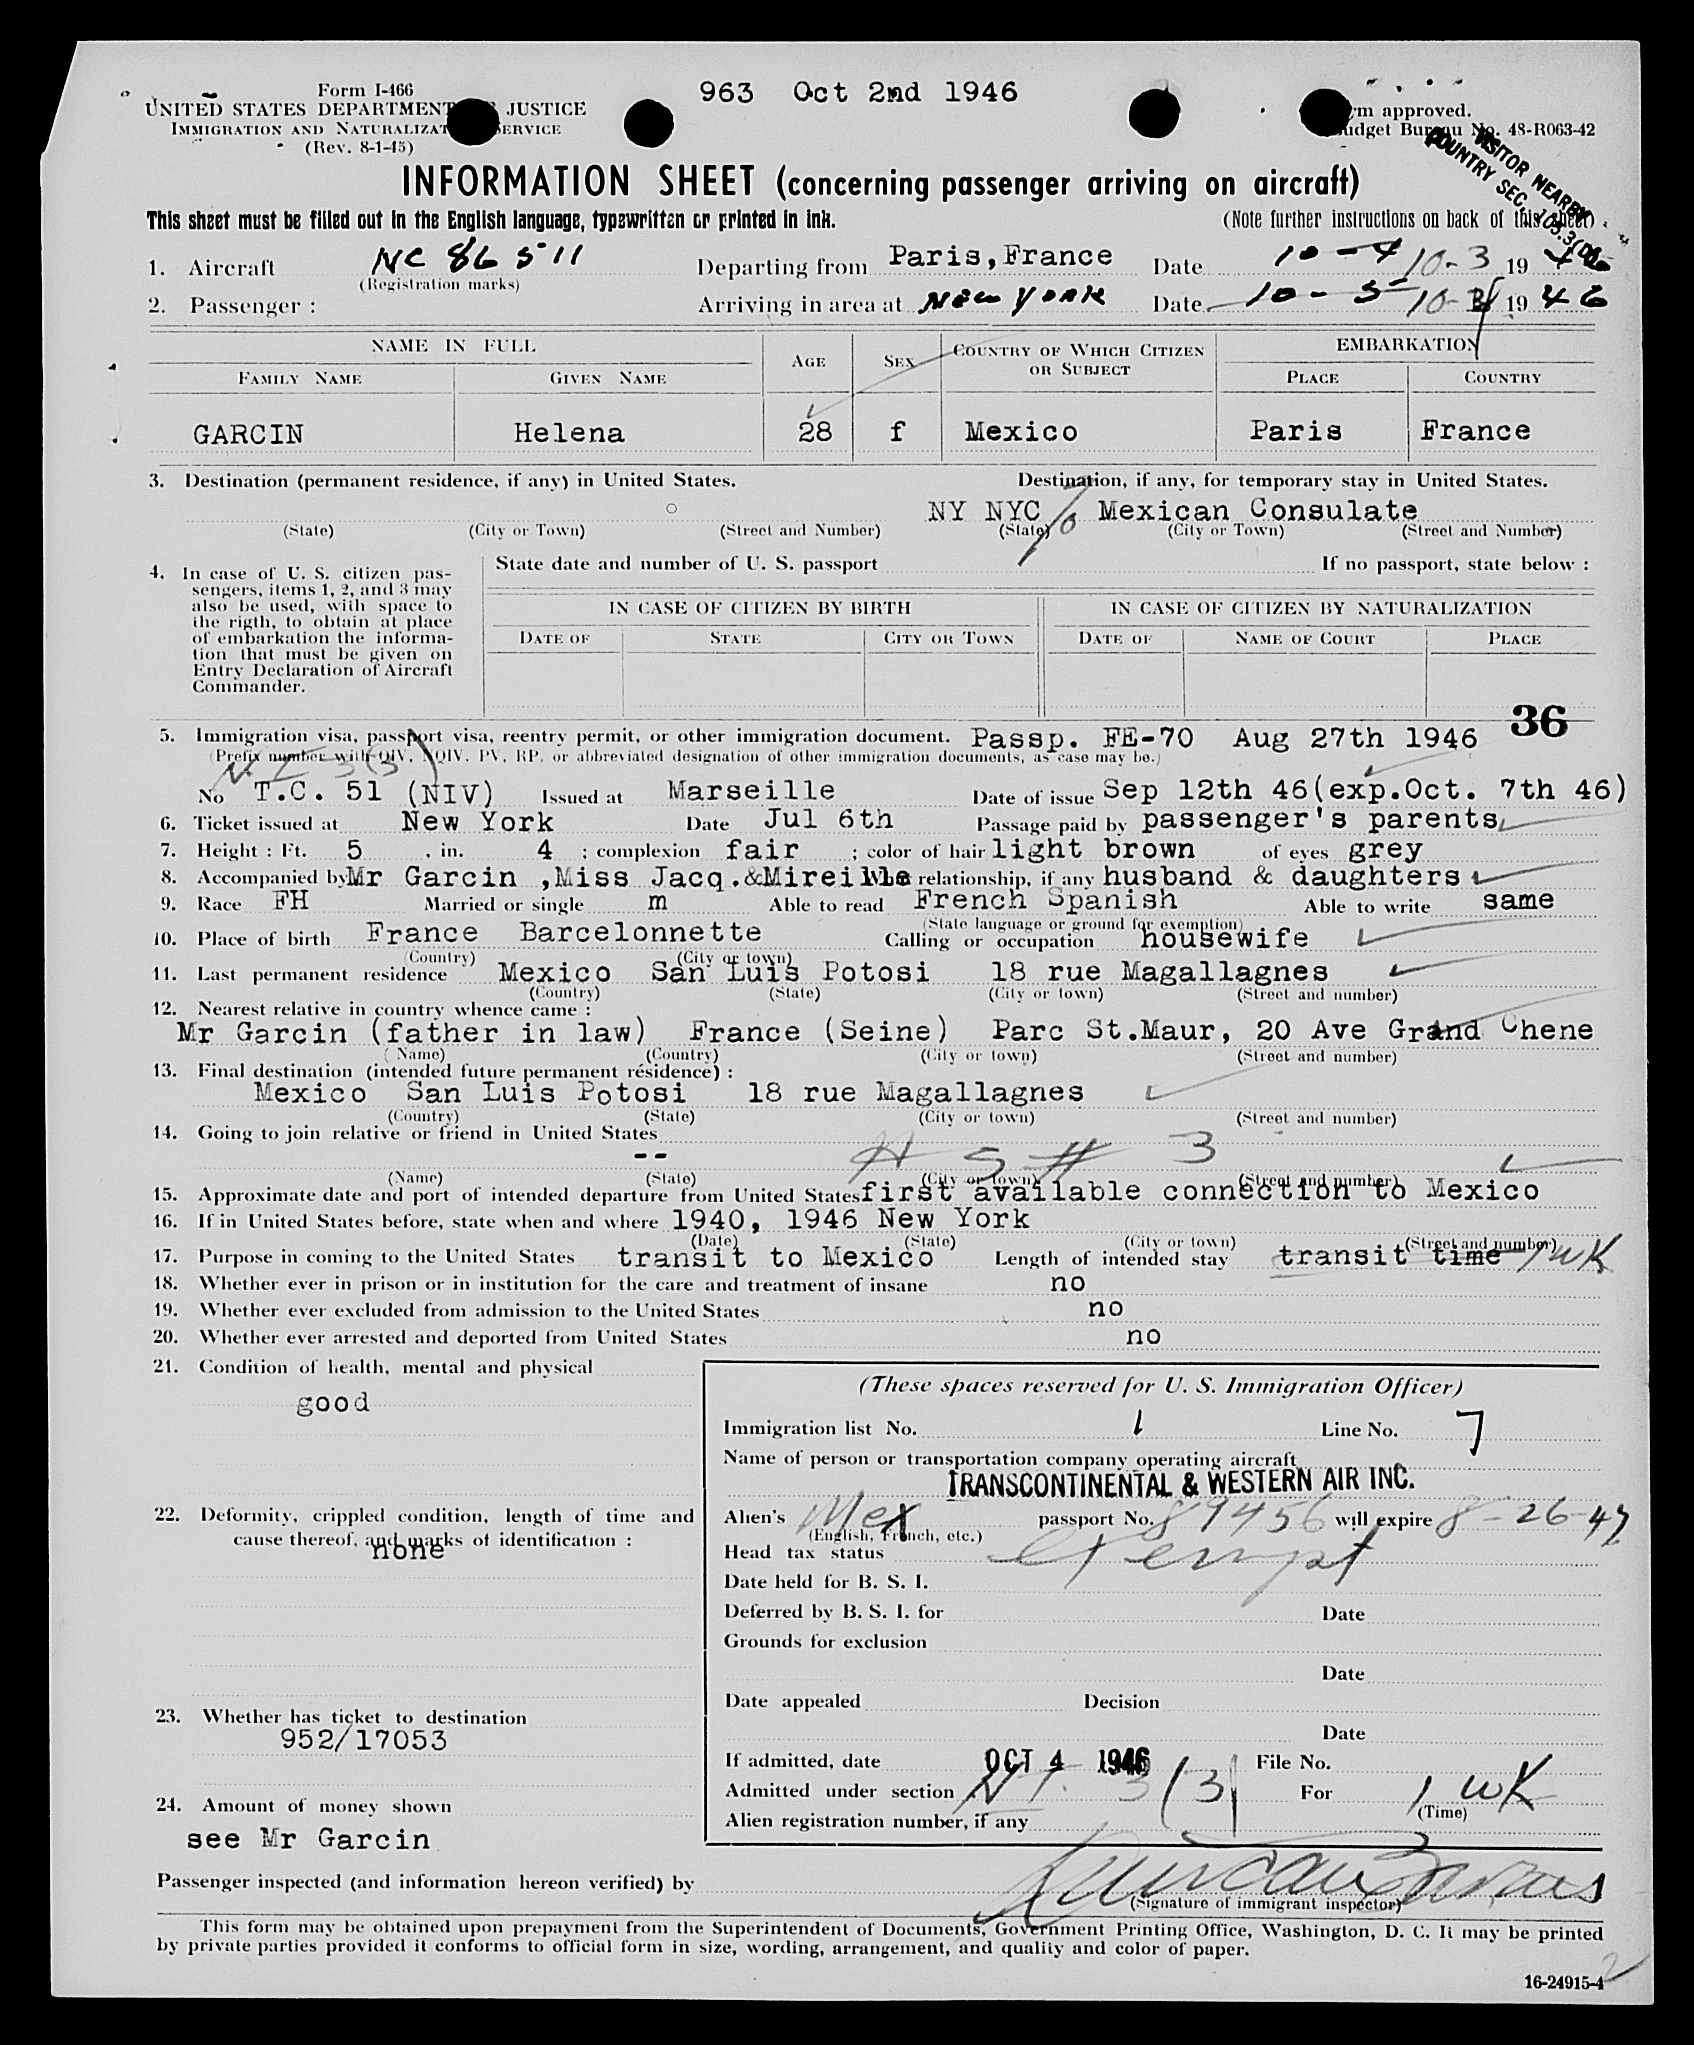 Form I-466
963 Oct 2nd 1946
UNITED STATES DEPARTMENT JUSTICE
IMMIGRATION AND NATURALIZAT ERVICE
(Rev. 8-1-45)
m approved.
udget Bureau No. 48-R063-42
VISITOR NEARBY
COUNTRY SEC.
INFORMATION SHEET (concerning passenger arriving on aircraft)
This sheet must be filled out in the English language, typewritten or printed in ink. (Note further instructions on back of this sheet)
1. Aircraft NC 86511 Departing from Paris,France Date 10-4 10-3 19 46
(Registration marks)
2. Passenger : Arriving in area at New York Date 10-5 10- 19 46
NAME IN FULL AGE SEX COUNTRY OF WHICH CITIZEN OR SUBJECT EMBARKATION
FAMILY NAME GIVEN NAME PLACE COUNTRY
GARCIN Helena 28 f Mexico Paris France
3. Destination (permanent residence, if any) in United States. Destination, if any, for temporary stay in United States.
NY NYC c/o Mexican Consulate
(State) (City or Town) (Street and Number) (State) (City or Town) (Street and Number)
4. In case of U. S. citizen pas-
sengers, items 1, 2, and 3 may
also be used, with space to
the rigth, to obtain at place
of embarkation the informa-
tion that must be given on
Entry Declaration of Aircraft
Commander.
State date and number of U. S. passport If no passport, state below :
IN CASE OF CITIZEN BY BIRTH IN CASE OF CITIZEN BY NATURALIZATION
DATE OF STATE CITY OR TOWN DATE OF NAME OF COURT PLACE
36
5. Immigration visa, passport visa, reentry permit, or other immigration document. Passp. FE-70 Aug 27th 1946
(Prefix number with QIV, NQIV, PV, RP, or abbreviated designation of other immigration documents, as case may be.)
N. I 3(3)
No T.C. 51 (NIV) Issued at Marseille Date of issue Sep 12th 46(exp.Oct. 7th 46)
6. Ticket issued at New York Date Jul 6th Passage paid by passenger's parents
7. Height : Ft. 5 , in. 4 ; complexion fair ; color of hair light brown of eyes grey
8. Accompanied by Mr Garcin ,Miss Jacq.&Mireille relationship, if any husband & daughters
9. Race FH Married or single m Able to read French Spanish Able to write same
(State language or ground for exemption)
10. Place of birth France Barcelonnette Calling or occupation housewife
(Country) (City or town)
11. Last permanent residence Mexico San Luis Potosi 18 rue Magallagnes
(Country) (State) (City or town) (Street and number)
12. Nearest relative in country whence came :
Mr Garcin (father in law) France (Seine) Parc St.Maur, 20 Ave Grand Chene
(Name) (Country) (City or town) (Street and number)
13. Final destination (intended future permanent résidence) :
Mexico San Luis Potosi 18 rue Magallagnes
(Country) (State) (City or town) (Street and number)
14. Going to join relative or friend in United States
-- # 3
(Name) (State) (City or town) (Street and number)
15. Approximate date and port of intended departure from United States first available connection to Mexico
16. If in United States before, state when and where 1940, 1946 New York
(Date) (State) (City or town) (Street and number)
17. Purpose in coming to the United States transit to Mexico Length of intended stay transit time 1 WK
18. Whether ever in prison or in institution for the care and treatment of insane no
19. Whether ever excluded from admission to the United States no
20. Whether ever arrested and deported from United States no
21. Condition of health, mental and physical
good
22. Deformity, crippled condition, length of time and
cause thereof, and marks of identification :
none
23. Whether has ticket to destination
952/17053
24. Amount of money shown
see Mr Garcin
(These spaces reserved for U. S. Immigration Officer)
Immigration list No. 1 Line No. 7
Name of person or transportation company operating aircraft
TRANSCONTINENTAL & WESTERN AIR INC.
Alien's Mex passport No. 89456 will expire 8-26-47
(English, French, etc.)
Head tax status exempt
Date held for B. S. I.
Deferred by B. S. I. for Date
Grounds for exclusion
Date
Date appealed Decision
Date
If admitted, date OCT 4 1946 File No.
Admitted under section N I. 3(3) For 1 WK
(Time)
Alien registration number, if any
Passenger inspected (and information hereon verified) by
(Signature of immigrant inspector)
This form may be obtained upon prepayment from the Superintendent of Documents, Government Printing Office, Washington, D. C. It may be printed
by private parties provided it conforms to official form in size, wording, arrangement, and quality and color of paper.
16-24915-4